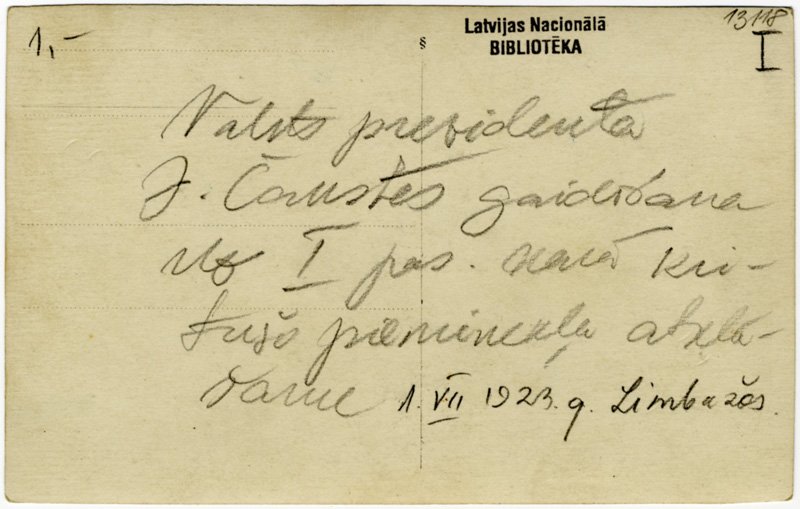 1,-
Latvijas Nacionālā
BIBLIOTĒKA
§
13118
I
Valsts prezidenta
J. Čakstes gaidīšana
uz I pas. karā kri-
tušo pieminekļa atklā-
šanu 1. VII 1923. g. Limbažos.